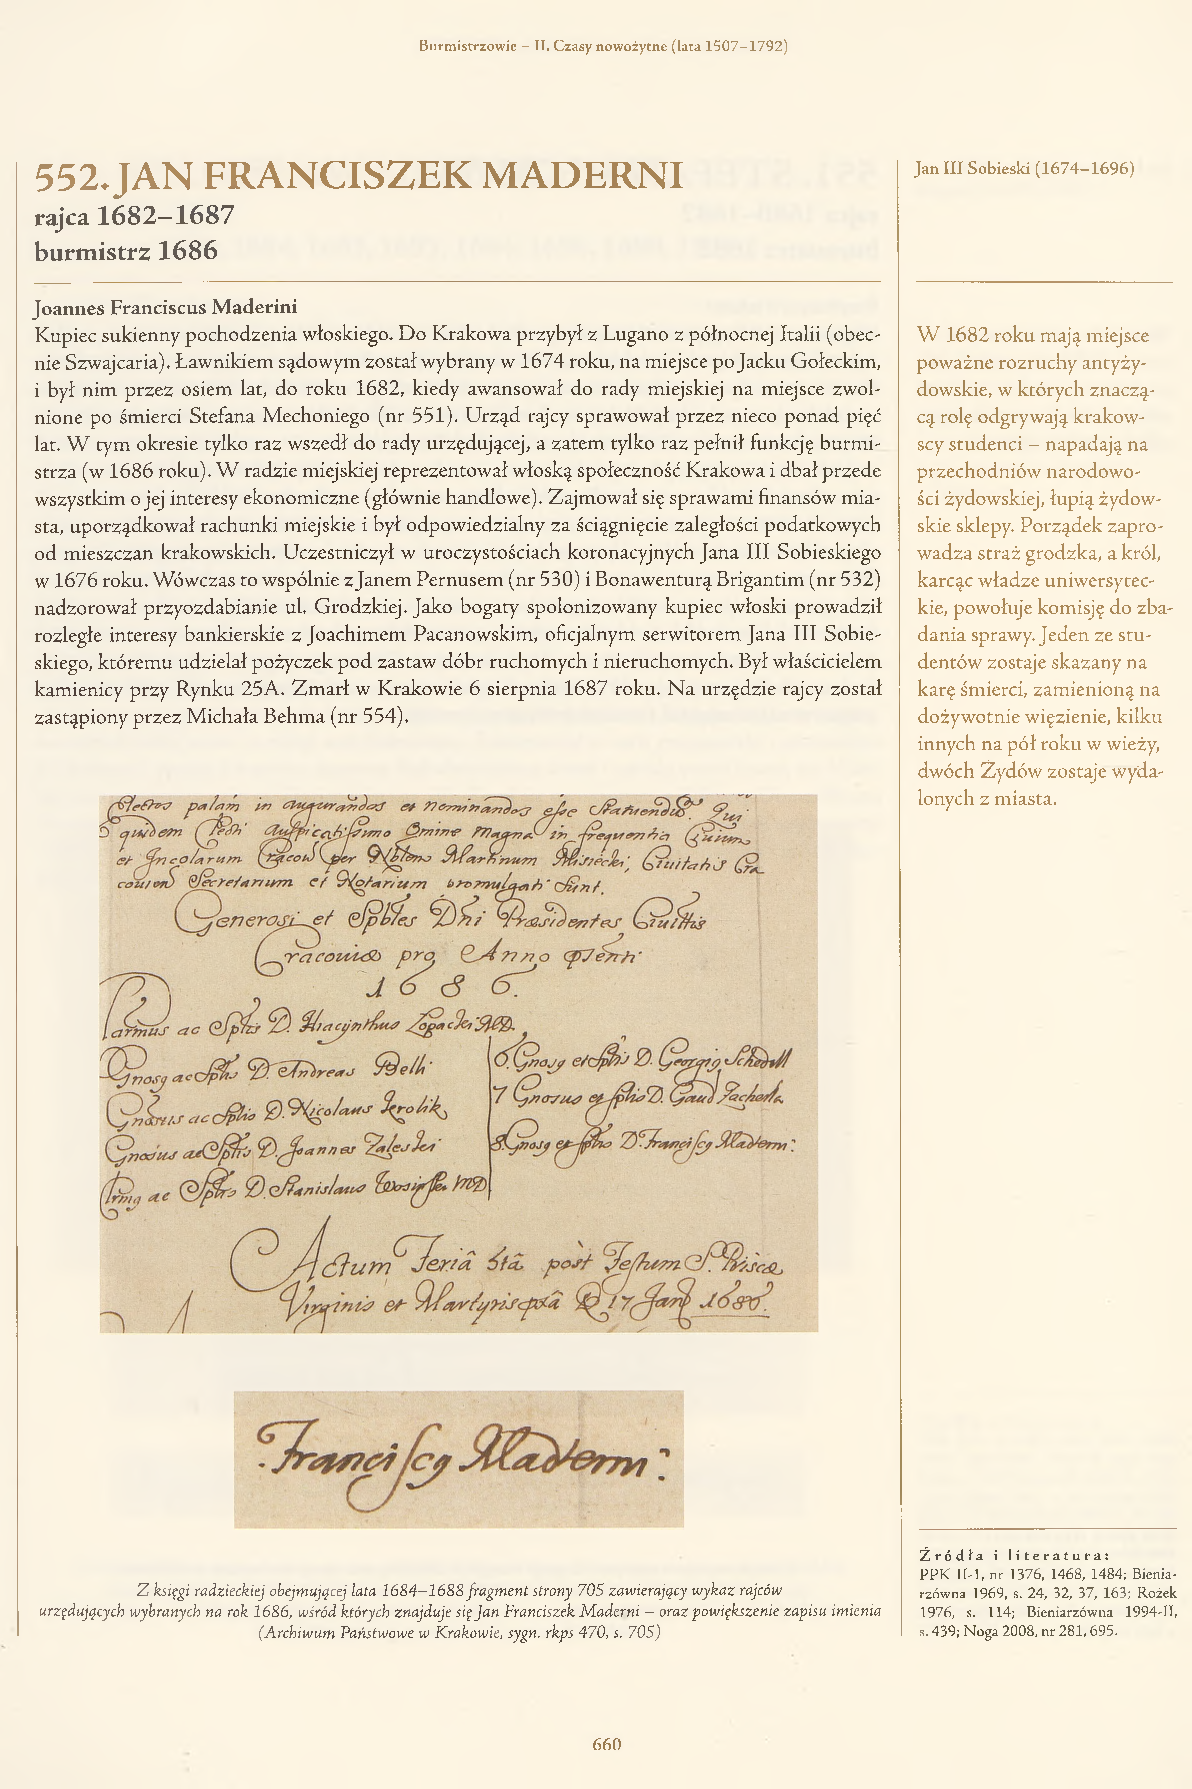 Burmistrzowie – II. Czasy nowożytne (lata 1507–1792)
552. JAN FRANCISZEK MADERNI
rajca 1682–1687
burmistrz 1686
Joannes Franciscus Maderini
Kupiec sukienny pochodzenia włoskiego. Do Krakowa przybył z Lugano z północnej Italii (obec-
nie Szwajcaria). Ławnikiem sądowym został wybrany w 1674 roku, na miejsce po Jacku Gołeckim,
i był nim przez osiem lat, do roku 1682, kiedy awansował do rady miejskiej na miejsce zwol-
nione po śmierci Stefana Mechoniego (nr 551). Urząd rajcy sprawował przez nieco ponad pięć
lat. W tym okresie tylko raz wszedł do rady urzędującej, a zatem tylko raz pełnił funkcję burmi-
strza (w 1686 roku). W radzie miejskiej reprezentował włoską społeczność Krakowa i dbał przede
wszystkim o jej interesy ekonomiczne (głównie handlowe). Zajmował się sprawami finansów mia-
sta, uporządkował rachunki miejskie i był odpowiedzialny za ściągnięcie zaległości podatkowych
od mieszczan krakowskich. Uczestniczył w uroczystościach koronacyjnych Jana III Sobieskiego
w 1676 roku. Wówczas to wspólnie z Janem Pernusem (nr 530) i Bonawenturą Brigantim (nr 532)
nadzorował przyozdabianie ul. Grodzkiej. Jako bogaty spolonizowany kupiec włoski prowadził
rozległe interesy bankierskie z Joachimem Pacanowskim, oficjalnym serwitorem Jana III Sobie-
skiego, któremu udzielał pożyczek pod zastaw dóbr ruchomych i nieruchomych. Był właścicielem
kamienicy przy Rynku 25A. Zmarł w Krakowie 6 sierpnia 1687 roku. Na urzędzie rajcy został
zastąpiony przez Michała Behma (nr 554).
Jan III Sobieski (1674–1696)
W 1682 roku mają miejsce
poważne rozruchy antyży-
dowskie, w których znaczą-
cą rolę odgrywają krakow-
scy studenci – napadają na
przechodniów narodowo-
ści żydowskiej, łupią żydow-
skie sklepy. Porządek zapro-
wadza straż grodzka, a król,
karcąc władze uniwersytec-
kie, powołuje komisję do zba-
dania sprawy. Jeden ze stu-
dentów zostaje skazany na
karę śmierci, zamienioną na
dożywotnie więzienie, kilku
innych na pół roku w wieży,
dwóch Żydów zostaje wyda-
lonych z miasta.
palam in augurandos et Nominandos esse Qui
quidem Omine Magna in frequentia Ciuium
et Incolarum per Martinum Ciuitatis Cra
Secretarium et Notarium promulgati sunt.
Generosi et Dni Præsidentes
pro Anno
1686.
ac D. Hiacynthus
D. Andreas Belli
D. Nicolaus
D. Joannes Zaleski
ac D. Stanislaus MD
6. D.
7 D.
8. D. Maderni
Actum Feriâ 5tâ post Festum S. Priscæ
Virginis et Martyris 17 1686.
Maderni
Z księgi radzieckiej obejmującej lata 1684–1688 fragment strony 705 zawierający wykaz rajców
urzędujących wybranych na rok 1686, wśród których znajduje się Jan Franciszek Maderni – oraz powiększenie zapisu imienia
(Archiwum Państwowe w Krakowie, sygn. rkps 470, s. 705)
Źródła i literatura:
PPK II-1, nr 1376, 1468, 1484; Bienia-
rzówna 1969, s. 24, 32, 37, 163; Rożek
1976, s. 114; Bieniarzówna 1994-II,
s. 439; Noga 2008, nr 281, 695.
660